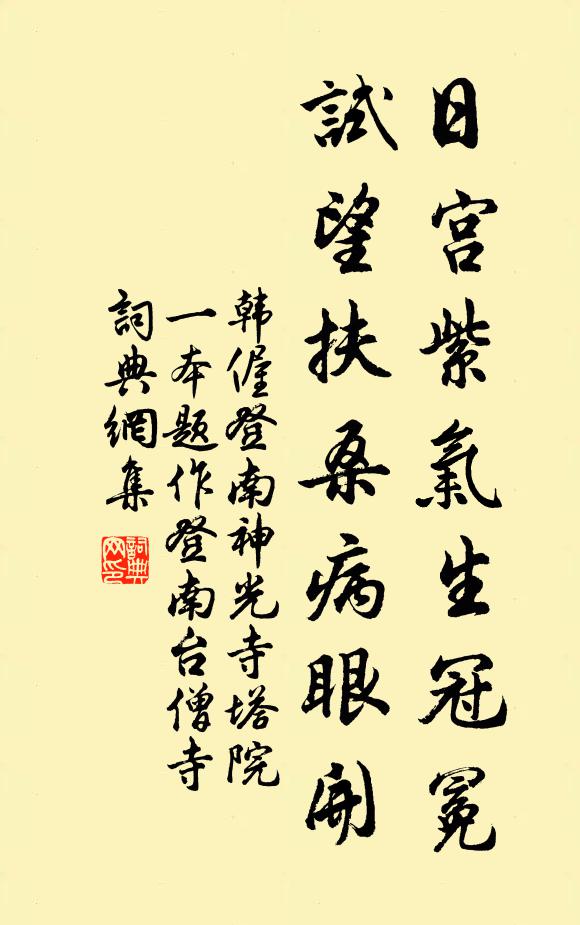 日宫紫氣生冠冕
試望扶桑病眼開
韩偓登南神光寺塔院
一本题作登南台僧寺
詞典網集
詞典網印